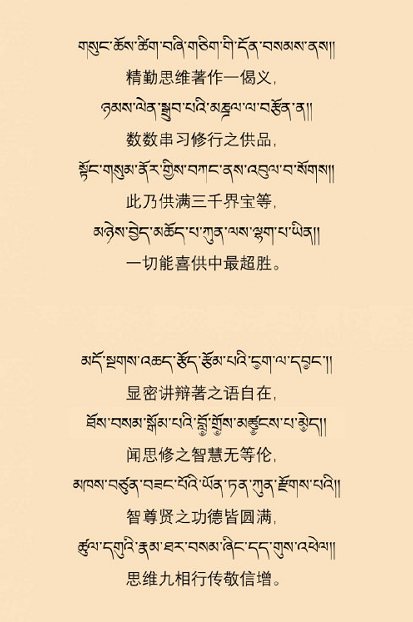 གསུང་ཆོས་ཚིག་བཞི་གཅིག་གི་དོན་བསམས་ནས།།
精勤思维著作一偈义，
ཉམས་ལེན་སྒྲུབ་པའི་མཎྜལ་ལ་བརྩོན་ན།།
数数串习修行之供品，
སྟོང་གསུམ་ནོར་གྱིས་བཀང་ནས་འབུལ་བ་སོགས།།
此乃供满三千界宝等，
མཉེས་བྱེད་མཆོད་པ་ཀུན་ལས་ལྷག་པ་ཡིན།།
一切能喜供中最超胜。
མདོ་སྔགས་འཆད་རྩོད་རྩོམ་པའི་ངག་ལ་དབང་།།
显密讲辩著之语自在，
ཐོས་བསམ་སྒོམ་པའི་བློ་གྲོས་མཚུངས་པ་མེད།།
闻思修之智慧无等伦，
མཁས་བཙུན་བཟང་པོའི་ཡོན་ཏན་ཀུན་རྫོགས་པའི།།
智尊贤之功德皆圆满，
ཚུལ་དགུའི་རྣམ་ཐར་བསམ་ཞིང་དད་གུས་འཕེལ།།
思维九相行传敬信增。